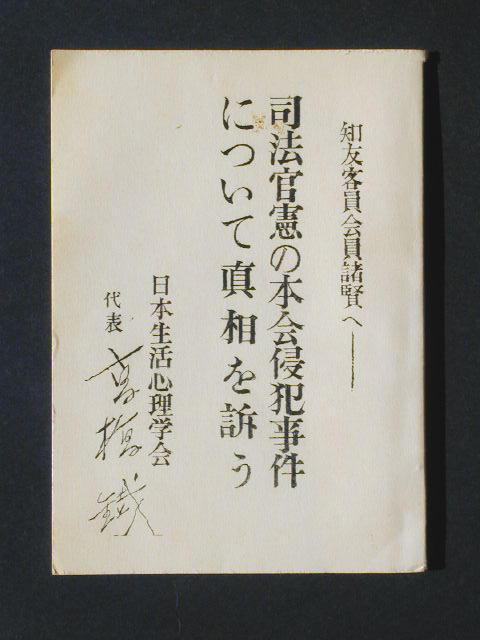 知友客員会員諸賢へ——
司法官憲の本会侵犯事件
について真相を訴う
日本生活心理学会
代表 高橋鐵